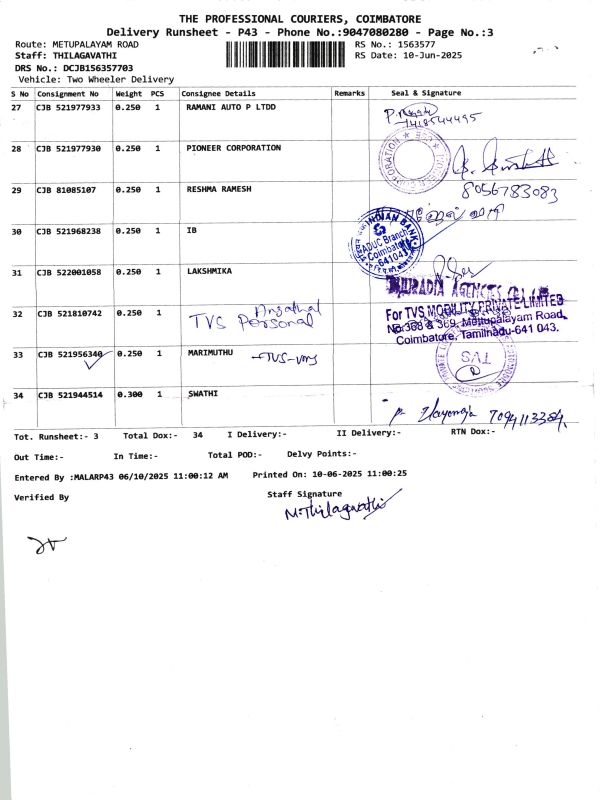 THE PROFESSIONAL COURIERS, COIMBATORE
Delivery Runsheet - P43 - Phone No.:9047080280 - Page No.:3
Route: METUPALAYAM ROAD RS No.: 1563577
Staff: THILAGAVATHI RS Date: 10-Jun-2025
DRS No.: DCJB156357703
Vehicle: Two Wheeler Delivery
S No Consignment No Weight PCS Consignee Details Remarks Seal & Signature
27 CJB 521977933 0.250 1 RAMANI AUTO P LTDD
28 CJB 521977930 0.250 1 PIONEER CORPORATION
8056783083
29 CJB 81085107 0.250 1 RESHMA RAMESH
30 CJB 521968238 0.250 1 IB
INDIAN BANK
ADUC Branch
Coimbatore
641043
31 CJB 522001058 0.250 1 LAKSHMIKA
AGENCIES
For TVS MOBILITY PRIVATE LIMITED
32 CJB 521810742 0.250 1 TVS Personal
No:368 & 369, Mettupalayam Road,
Coimbatore, Tamilnadu-641 043.
33 CJB 521956340 0.250 1 MARIMUTHU
TVS
34 CJB 521944514 0.300 1 SWATHI
7094113384
Tot. Runsheet:- 3 Total Dox:- 34 I Delivery:- II Delivery:- RTN Dox:-
Out Time:- In Time:- Total POD:- Delvy Points:-
Entered By :MALARP43 06/10/2025 11:00:12 AM Printed On: 10-06-2025 11:00:25
Verified By Staff Signature
M.Thilagavathi